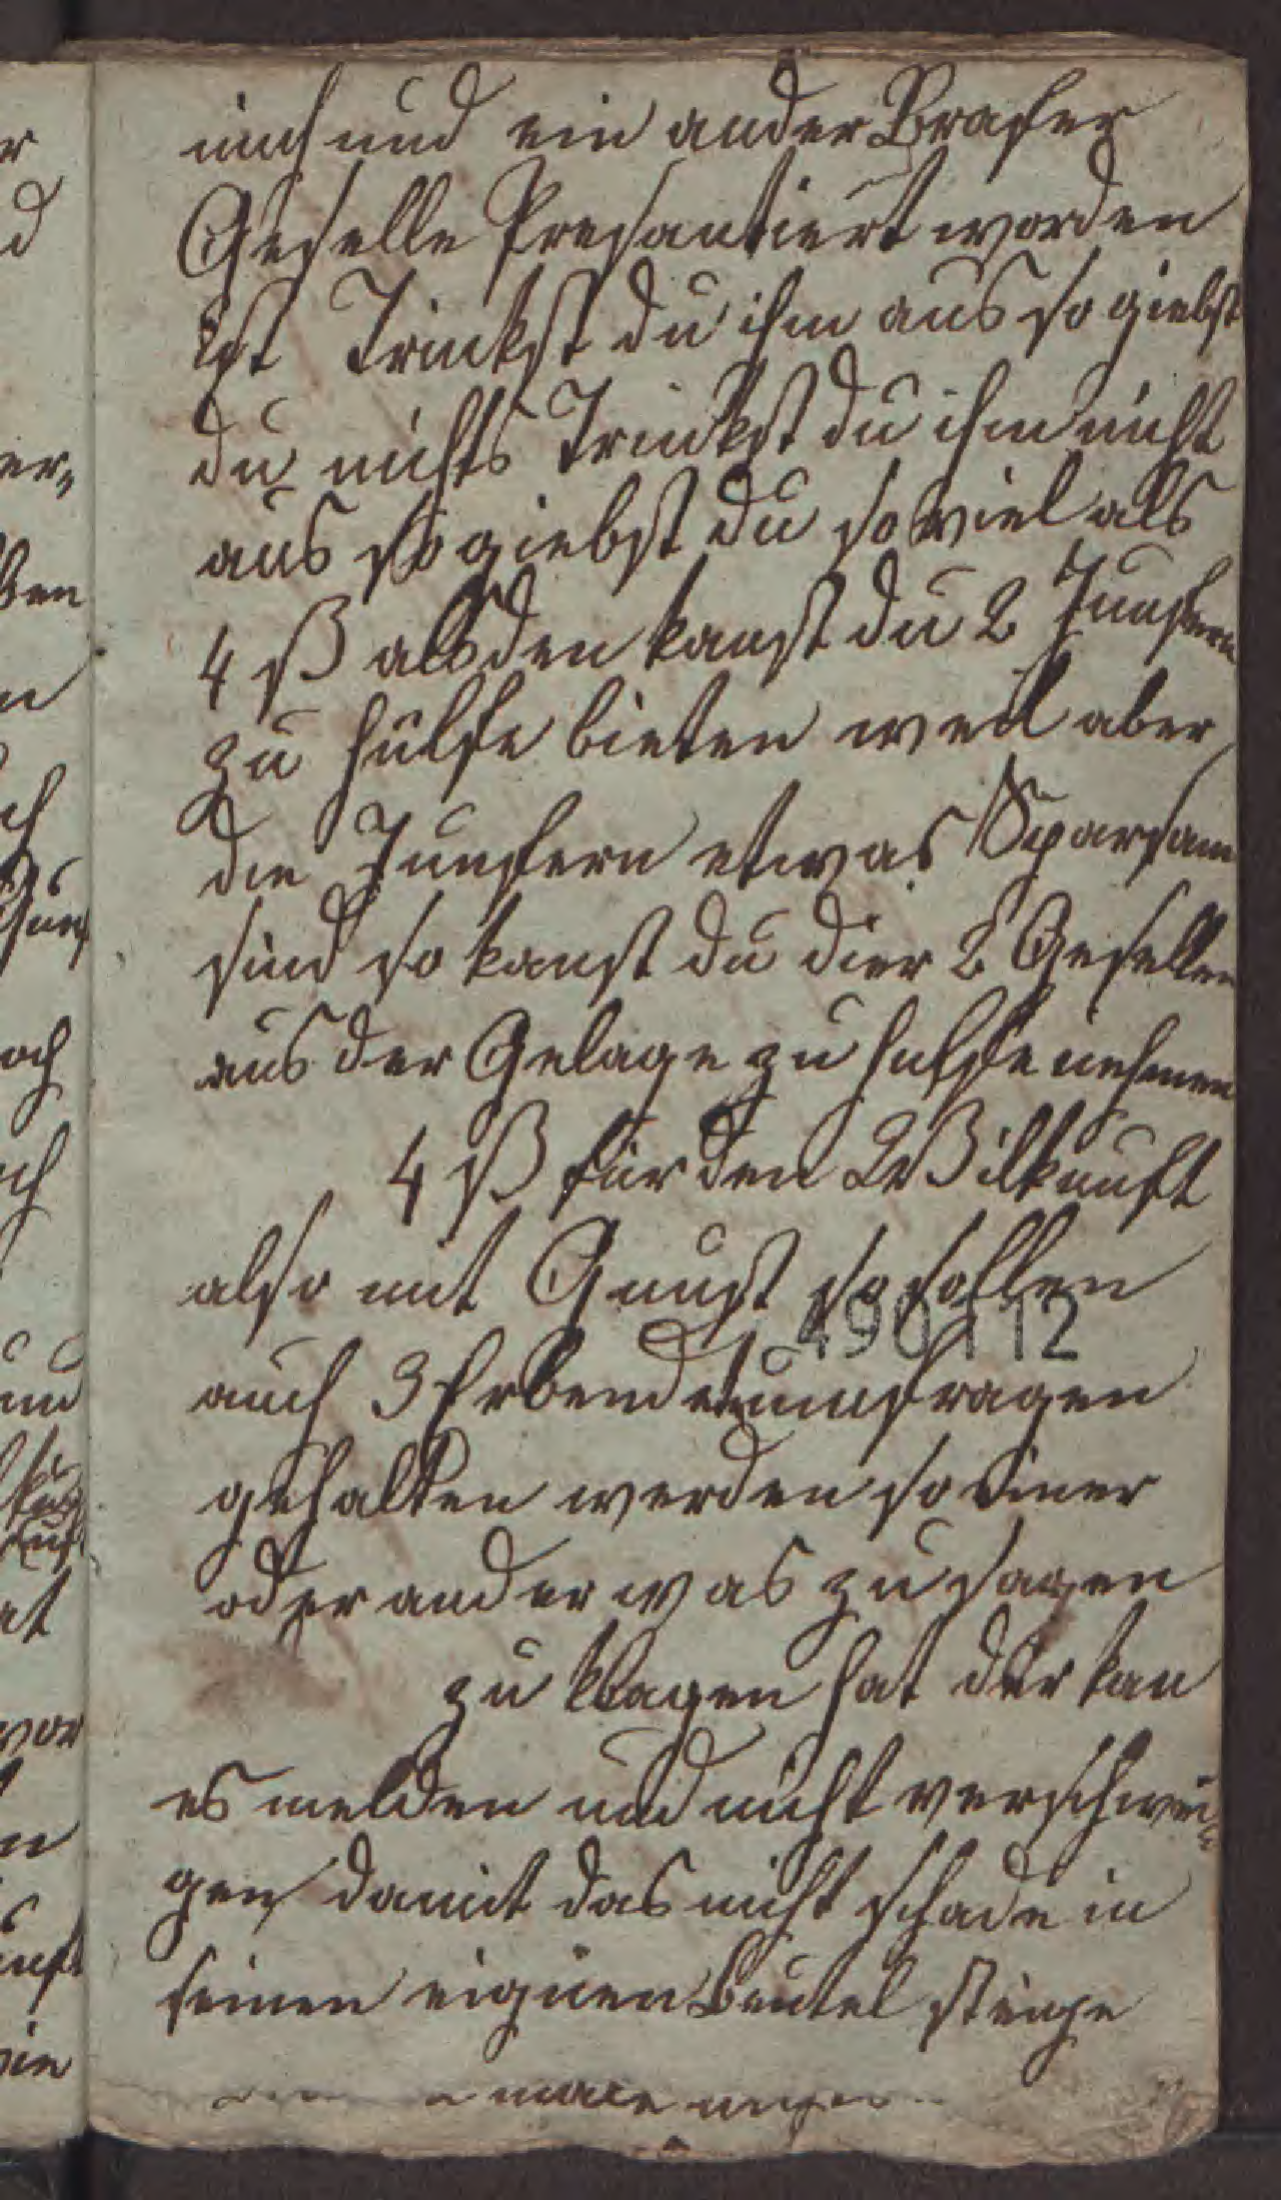 mich und ein ander Brafer
Geselle Presantiert worden
ist Trinckst du ihm aus so giebst
du nichts Trinckst du ihm nicht
aus so giebst du so viel als
4 ß alsden kanst du 2 Junfern
zu hülfe bieten weil aber
die Junfern etwas Sparsam
sind so kanst du dier 2 Gesellen
aus der Gelage zu hülfe nehmen
4 ß für den Wilkunft
also mit Gunst so sollen
490112
auch 3 umfragen
gehalten werden so einer
oder ander was zu sagen
zu klagen hat der kan
es melden und nicht verschwei
gen damit das nicht schade in
seinen eignen Beutel steige